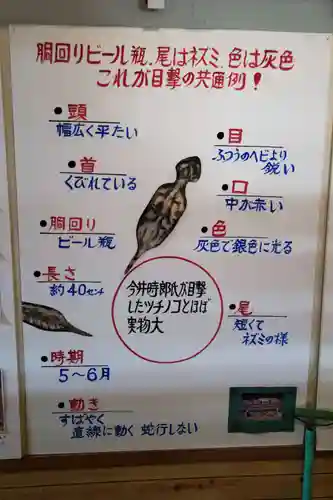 胴回りビール瓶、尾はネズミ、色は灰色
これが目撃の共通例！
●頭
幅広く平たい
●首
くびれている
●胴回り
ビール瓶
●長さ
約40センチ
●時期
5〜6月
●動き
すばやく
直線に動く 蛇行しない
●目
ふつうのヘビより
鋭い
●口
中が赤い
●色
灰色で銀色に光る
今井時郎氏が目撃
したツチノコとほぼ
実物大
●尾
短くて
ネズミの様